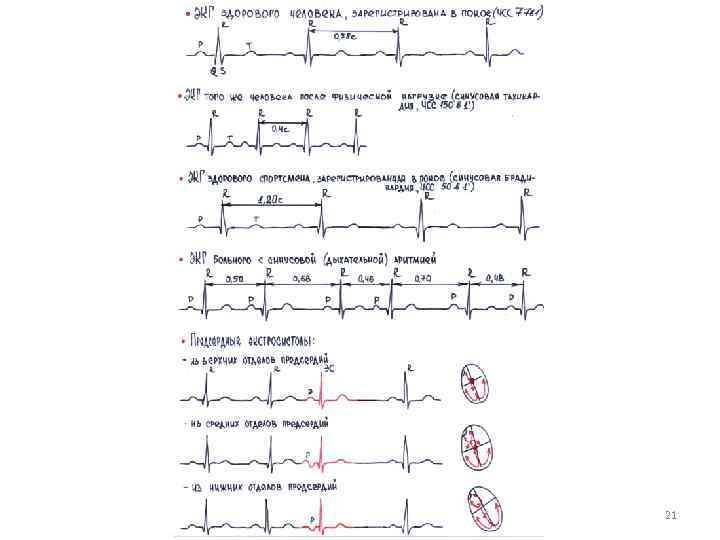 • ЭКГ ЗДОРОВОГО ЧЕЛОВЕКА, ЗАРЕГИСТРИРОВАНА В ПОКОЕ (ЧСС 77 В 1')
R R R R
0,78с
P T
Q S
• ЭКГ ТОГО ЖЕ ЧЕЛОВЕКА ПОСЛЕ ФИЗИЧЕСКОЙ НАГРУЗКЕ (СИНУСОВАЯ ТАХИКАР-
ДИЯ, ЧСС 150 В 1')
R R R R
0,4с
P T
• ЭКГ ЗДОРОВОГО СПОРТСМЕНА, ЗАРЕГИСТРИРОВАНАЯ В ПОКОЕ (СИНУСОВАЯ БРАДИ-
КАРДИЯ, ЧСС 50 В 1')
R R R R
1,20с
P T
• ЭКГ БОЛЬНОГО С СИНУСОВОЙ (ДЫХАТЕЛЬНОЙ) АРИТМИЕЙ
R R R R R R
0,50 0,68 0,46 0,70 0,48
P P P P P P
• ПРЕДСЕРДНЫЕ ЭКСТРОСИСТОЛЫ:
- ИЗ ВЕРХНИХ ОТДЕЛОВ ПРЕДСЕРДИЙ
R R ЭС R
P
- ИЗ СРЕДНИХ ОТДЕЛОВ ПРЕДСЕРДИЙ
P
- ИЗ НИЖНИХ ОТДЕЛОВ ПРЕДСЕРДИЙ
P
21